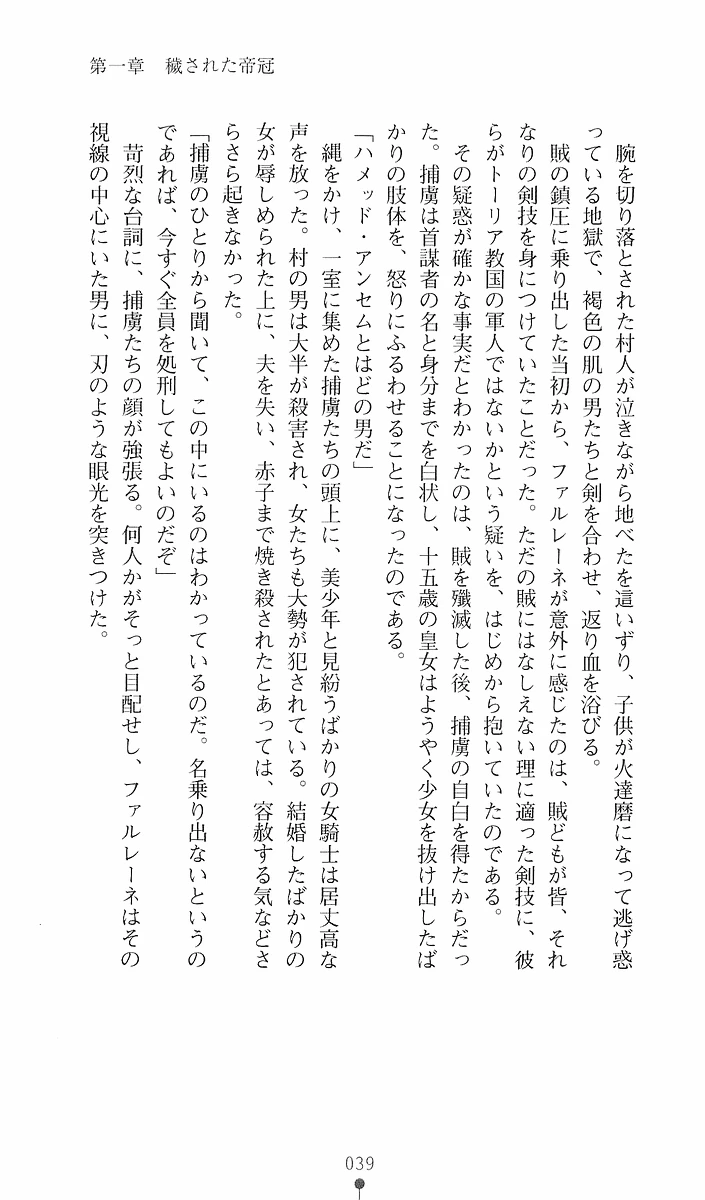 第一章　穢された帝冠
　腕を切り落とされた村人が泣きながら地べたを這いずり、子供が火達磨になって逃げ惑
っている地獄で、褐色の肌の男たちと剣を合わせ、返り血を浴びる。
　賊の鎮圧に乗り出した当初から、ファルレーネが意外に感じたのは、賊どもが皆、それ
なりの剣技を身につけていたことだった。ただの賊にはなしえない理に適った剣技に、彼
らがトーリア教国の軍人ではないかという疑いを、はじめから抱いていたのである。
　その疑惑が確かな事実だとわかったのは、賊を殲滅した後、捕虜の自白を得たからだっ
た。捕虜は首謀者の名と身分までを白状し、十五歳の皇女はようやく少女を抜け出したば
かりの肢体を、怒りにふるわせることになったのである。
「ハメッド・アンセムとはどの男だ」
　縄をかけ、一室に集めた捕虜たちの頭上に、美少年と見紛うばかりの女騎士は居丈高な
声を放った。村の男は大半が殺害され、女たちも大勢が犯されている。結婚したばかりの
女が辱しめられた上に、夫を失い、赤子まで焼き殺されたとあっては、容赦する気などさ
らさら起きなかった。
「捕虜のひとりから聞いて、この中にいるのはわかっているのだ。名乗り出ないというの
であれば、今すぐ全員を処刑してもよいのだぞ」
　苛烈な台詞に、捕虜たちの顔が強張る。何人かがそっと目配せし、ファルレーネはその
視線の中心にいた男に、刃のような眼光を突きつけた。
039